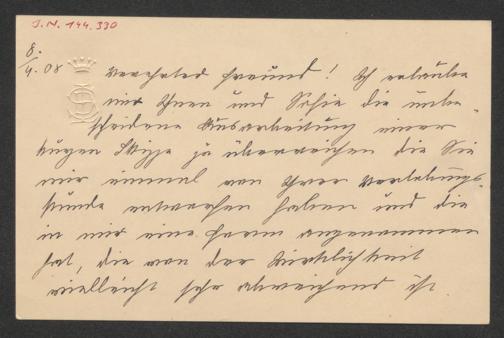 J.N. 144.330
8.
4. 08
Verehrter Freund! Ich erlaube
mir Ihnen und Sofie die unbe-
scheidene Ausarbeitung einer
kurzen Skizze zu überreichen die Sie
mir einmal von Ihrer Verlobungs-
stunde entworfen haben und die
in mir eine Form angenommen
hat, die von der Wirklichkeit
vielleicht sehr abweichend ist.